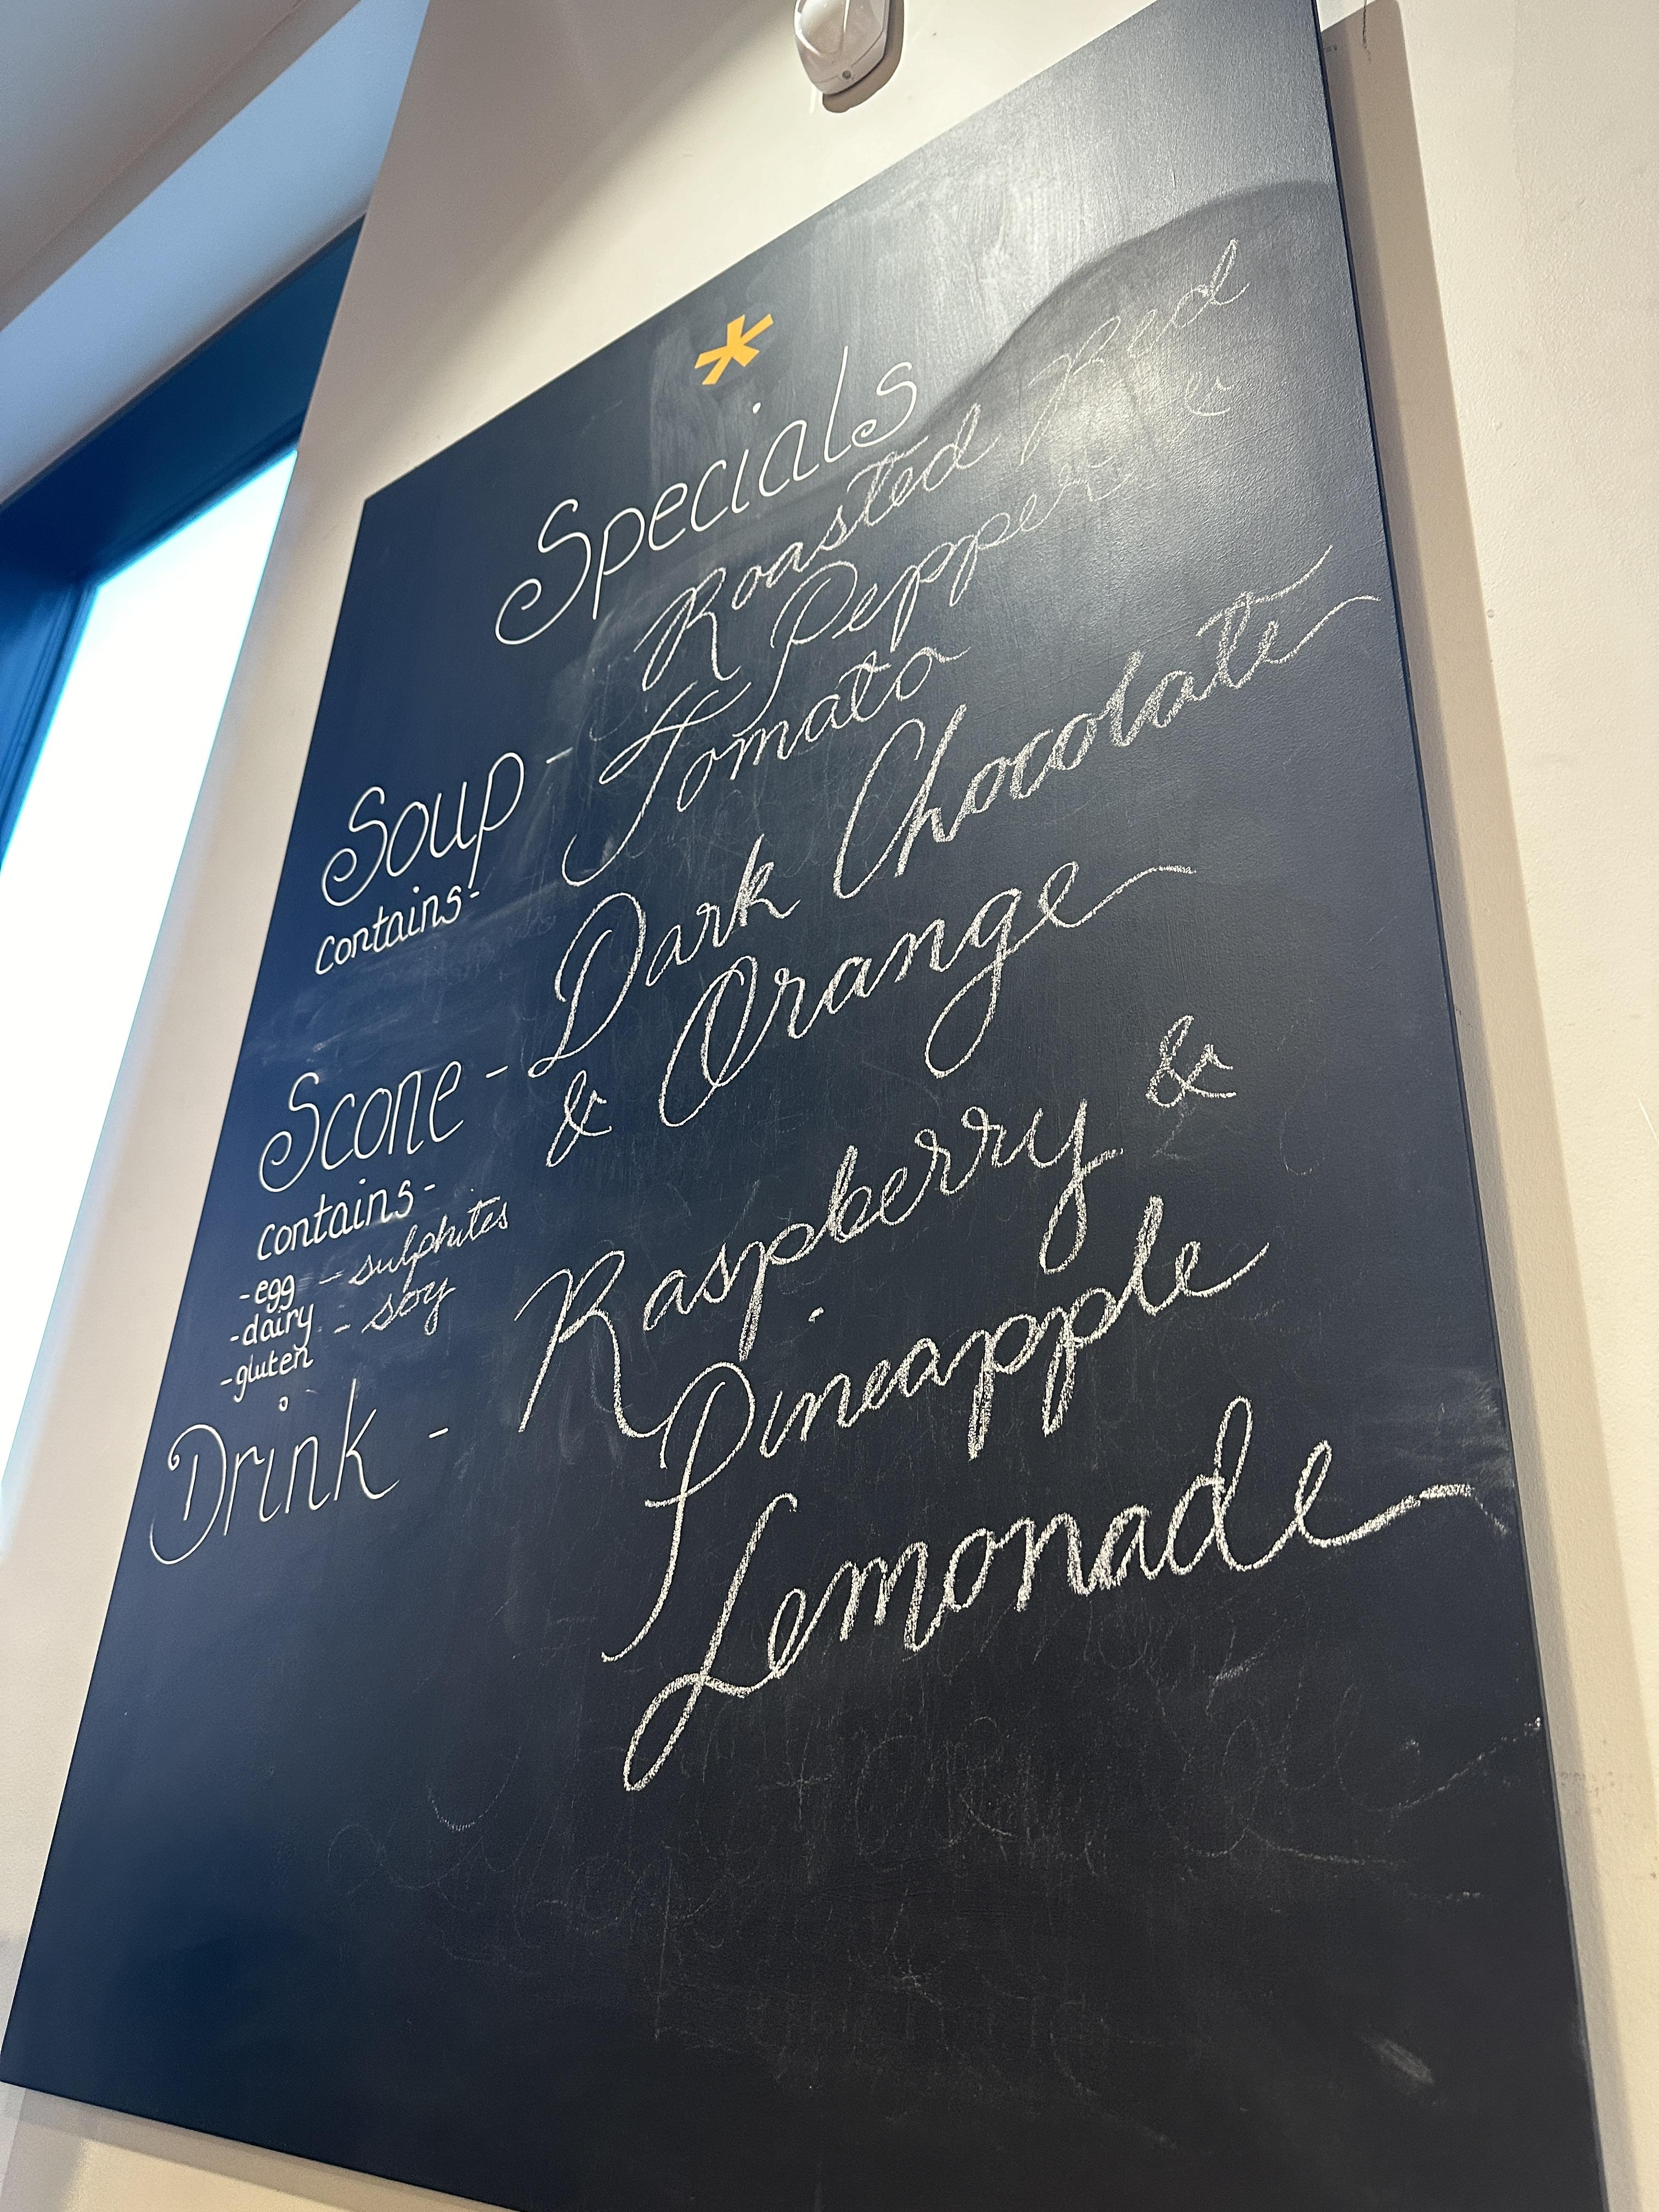 Specials
Soup - Roasted Red
Pepper &
Tomato
contains-
Scone - Dark Chocolate
& Orange
contains-
-egg - sulphites
-dairy - soy
-gluten
Drink - Raspberry &
Pineapple
Lemonade